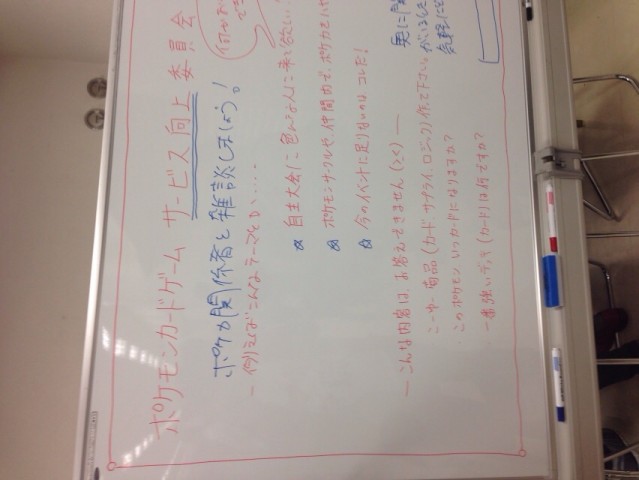 ポケモンカードゲーム サービス向上 委員会
ポケカ関係者と雑談しましょう!
ー例えばこんなテーマとか、・・・
☆ 自主大会に色んな人に来て欲しい
☆ ポケモンサークルや仲間内で、ポケカをハヤ
☆ 今のイベントに足りないのは、コレだ!
ー こんな内容は、お答えできません(><) ー
こーゆー商品(カード サプライ、ロジック)作って下さい
・このポケモン、いつカードになりますか?
・一番強いデッキ(カード)は何ですか?
更に
気軽に